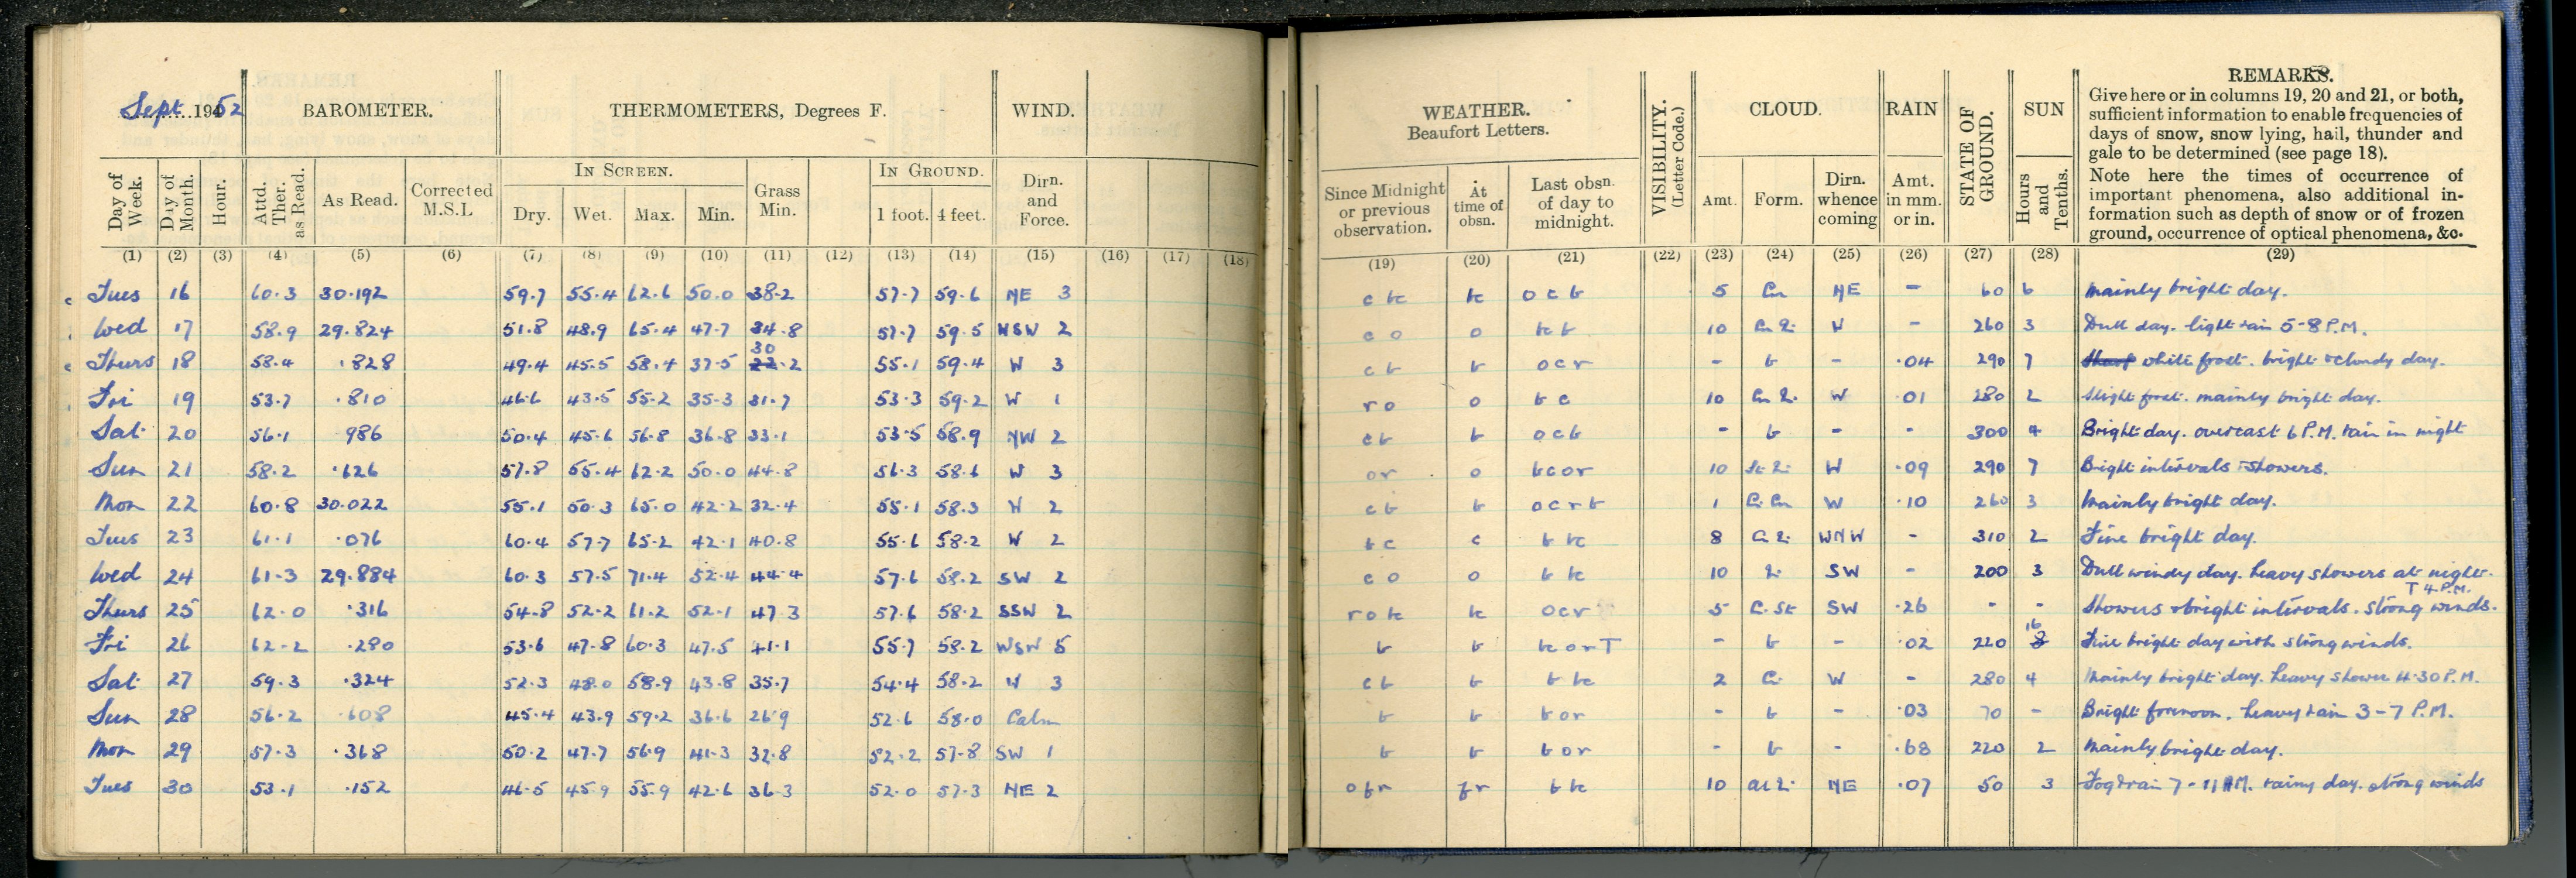 Sept. 1952 BAROMETER. THERMOMETERS, Degrees F. WIND.
IN SCREEN. IN GROUND.
Day of Week. Day of Month. Hour. Attd. Ther. as Read. As Read. Corrected M.S.L Dry. Wet. Max. Min. Grass Min. 1 foot. 4 feet. Dirn. and Force.
(1) (2) (3) (4) (5) (6) (7) (8) (9) (10) (11) (12) (13) (14) (15) (16) (17) (18)
Tues 16 60.3 30.192 59.7 55.4 62.6 50.0 38.2 57.7 59.6 NE 3
Wed 17 58.9 29.824 51.8 48.9 65.4 47.7 34.8 57.7 59.5 WSW 2
Thurs 18 58.4 .828 49.4 45.5 58.4 37.5 30.2 55.1 59.4 W 3
Fri 19 53.7 .810 46.6 43.5 55.2 35.3 31.7 53.3 59.2 W 1
Sat 20 56.1 986 50.4 45.6 56.8 36.8 33.1 53.5 58.9 NW 2
Sun 21 58.2 .626 57.8 55.4 62.2 50.0 44.8 56.3 58.6 W 3
Mon 22 60.8 30.022 55.1 50.3 65.0 42.2 32.4 55.1 58.3 W 2
Tues 23 61.1 .076 60.4 57.7 65.2 42.1 40.8 55.6 58.2 W 2
Wed 24 61.3 29.884 60.3 57.5 71.4 52.4 44.4 57.6 58.2 SW 2
Thurs 25 62.0 .316 54.8 52.2 61.2 52.1 47.3 57.6 58.2 SSW 2
Fri 26 62.2 .280 53.6 47.8 60.3 47.5 41.1 55.7 58.2 WSW 5
Sat 27 59.3 .324 52.3 48.0 58.9 43.8 35.7 54.4 58.2 W 3
Sun 28 56.2 .608 45.4 43.9 59.2 36.6 26.9 52.6 58.0 Calm
Mon 29 57.3 .368 50.2 47.7 56.9 41.3 32.8 52.2 57.8 SW 1
Tues 30 53.1 .152 46.5 45.9 55.9 42.6 36.3 52.0 57.3 NE 2
WEATHER. Beaufort Letters. VISIBILITY. (Letter Code.) CLOUD. RAIN STATE OF GROUND. SUN REMARKS.
Give here or in columns 19, 20 and 21, or both,
sufficient information to enable frequencies of
days of snow, snow lying, hail, thunder and
gale to be determined (see page 18).
Note here the times of occurrence of
important phenomena, also additional in-
formation such as depth of snow or of frozen
ground, occurrence of optical phenomena, &c.
Since Midnight or previous observation. At time of obsn. Last obsn. of day to midnight. Amt. Form. Dirn. whence coming Amt. in mm. or in. Hours and Tenths.
(19) (20) (21) (22) (23) (24) (25) (26) (27) (28) (29)
c bc bc o c b 5 Cu NE - 60 6 Mainly bright day.
c o o bc b 10 W - 260 3 Dull day. light rain 5-8 P.M.
c b b o c r - b - .04 290 7 white frost. bright & cloudy day.
r o o b c 10 W .01 280 2 Slight frost. mainly bright day.
c b b o c b - b - - 300 4 Bright day. overcast 6 P.M. rain in night
o r o b c o r 10 W .09 290 7 Bright intervals & showers.
c b b o c r b 1 W .10 260 3 Mainly bright day.
b c c b bc 8 WNW - 310 2 Fine bright day.
c o o b bc 10 SW - 200 3 Dull windy day. heavy showers at night.
r o bc bc o c r 5 SW .26 - - Showers & bright intervals. strong winds. T 4 P.M.
b b bc o r T - b - .02 220 16 Fine bright day with strong winds.
c b b b bc 2 W - 280 4 Mainly bright day. heavy shower 4.30 P.M.
b b b o r - b - .03 70 - Bright forenoon. heavy rain 3-7 P.M.
b b b o r - b - .68 220 2 Mainly bright day.
o f r f r b bc 10 NE .07 50 3 Fog & rain 7-11 AM. rainy day. strong winds